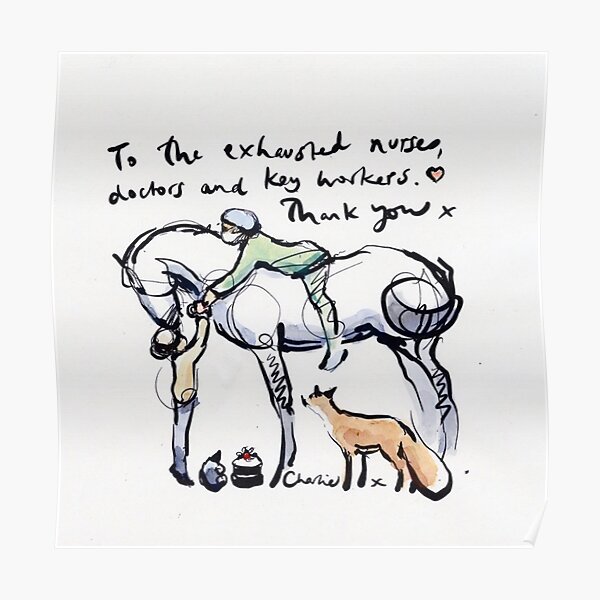 To the exhausted nurses,
doctors and key workers. ♡
Thank you x
Charlie x